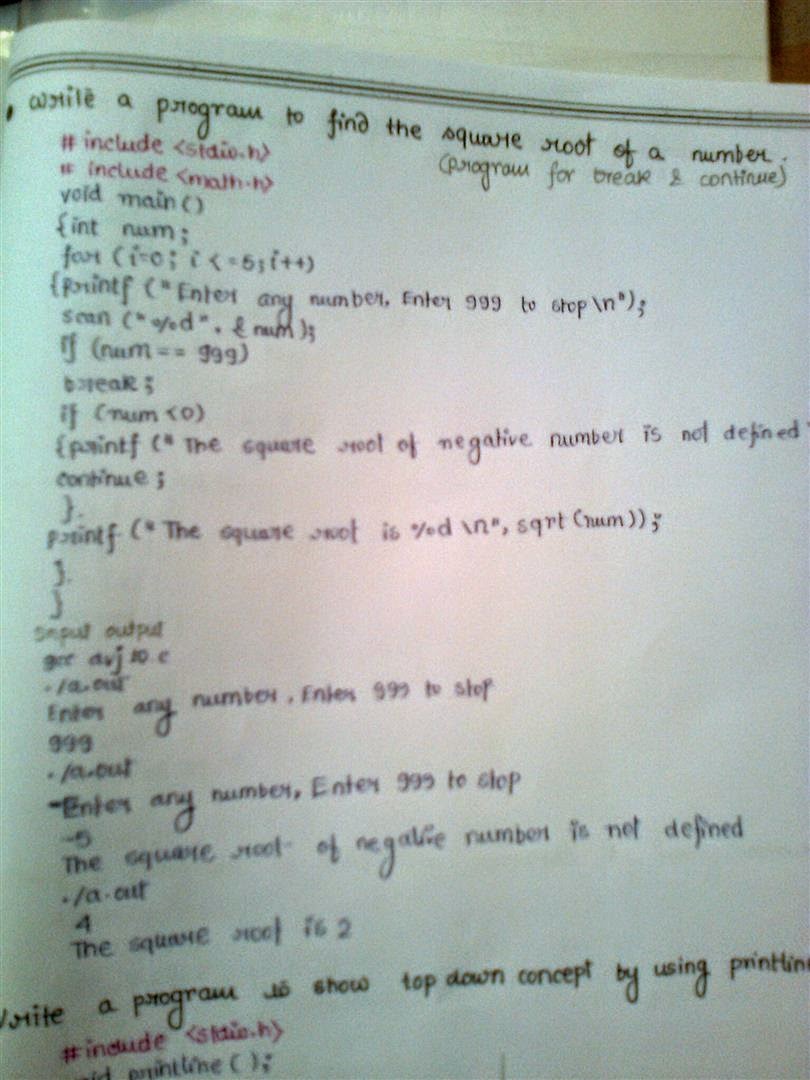 Write a program to find the square root of a number.
(program for break & continue)
# include <stdio.h>
# include <math.h>
void main()
{int num;
for (i=0; i <=5; i++)
{printf ("Enter any number, Enter 999 to stop \n");
scan ("%d", & num);
if (num == 999)
break;
if (num <0)
{printf (" The square root of negative number is not defined
continue;
}.
printf (" The square root is %d \n", sqrt (num));
}.
}
Input output
gcc avj 10 c
./a.out
Enter any number, Enter 999 to stop
999
./a.out
-Enter any number, Enter 999 to stop
-5
The square root of negative number is not defined
./a.out
4
The square root is 2
Write a program to show top down concept by using printline
#include <stdio.h>
void printline ();